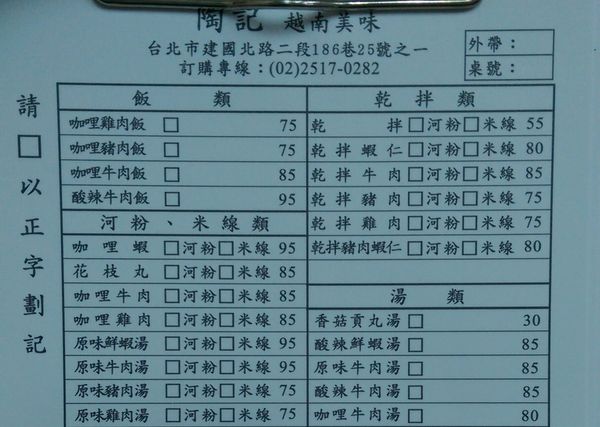 陶記 越南美味
台北市建國北路二段186巷25號之一
訂購專線：(02)2517-0282
外帶：
桌號：
請□以正字劃記
飯類
咖哩雞肉飯 □ 75
咖哩豬肉飯 □ 75
咖哩牛肉飯 □ 85
酸辣牛肉飯 □ 95
河粉、米線類
咖哩蝦 □河粉□米線 95
花枝丸 □河粉□米線 85
咖哩牛肉 □河粉□米線 85
咖哩雞肉 □河粉□米線 85
原味鮮蝦湯 □河粉□米線 95
原味牛肉湯 □河粉□米線 85
原味豬肉湯 □河粉□米線 75
原味雞肉湯 □河粉□米線 75
乾拌類
乾拌 □河粉□米線 55
乾拌蝦仁 □河粉□米線 80
乾拌牛肉 □河粉□米線 85
乾拌豬肉 □河粉□米線 75
乾拌雞肉 □河粉□米線 75
乾拌豬肉蝦仁 □河粉□米線 80
湯類
香菇貢丸湯 □ 30
酸辣鮮蝦湯 □ 85
原味牛肉湯 □ 85
酸辣牛肉湯 □ 85
咖哩牛肉湯 □ 80